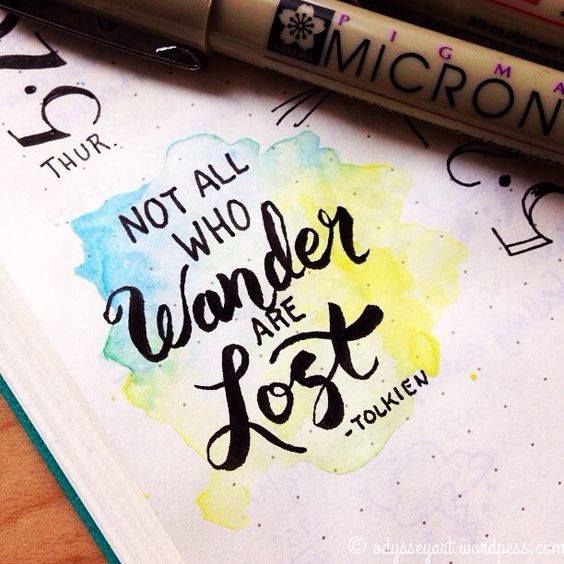 PIGMA
MICRON
THUR.
NOT ALL
WHO
Wander
ARE
Lost
-TOLKIEN
© odysseyart.wordpess.com